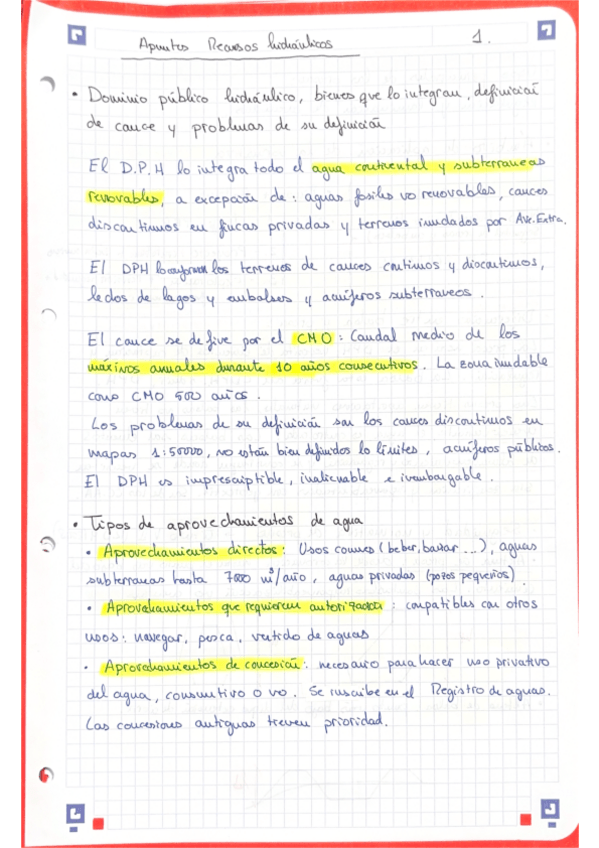 Apuntes Recursos hidráulicos 1.
• Dominio público hidráulico, bienes que lo integran, definición
de cauce y problemas de su definición
El D.P.H lo integra todo el agua continental y subterraneas
renovables, a excepción de: aguas fosiles no renovables, cauces
discontinuos en fincas privadas y terrenos inundados por Av. Extra.
El DPH lo conforman los terrenos de cauces continuos y discontinuos,
lechos de lagos y embalses y acuíferos subterraneos.
El cauce se define por el CMO: Caudal medio de los
máximos anuales durante 10 años consecutivos. La zona inundable
como CMO 500 años.
Los problemas de su definición son los cauces discontinuos en
mapas 1:50000, no están bien definidos lo límites, acuíferos públicos.
El DPH es imprescriptible, inalienable e inembargable.
• Tipos de aprovechamientos de agua
• Aprovechamientos directos: Usos comunes (beber, bañar ...), aguas
subterraneas hasta 7000 m³/año, aguas privadas (pozos pequeños)
• Aprovechamientos que requieren autorización: compatibles con otros
usos: navegar, pesca, vertido de aguas
• Aprovechamientos de concesión: necesario para hacer uso privativo
del agua, consuntivo o no. Se inscribe en el Registro de aguas.
Las concesiones antiguas tienen prioridad.